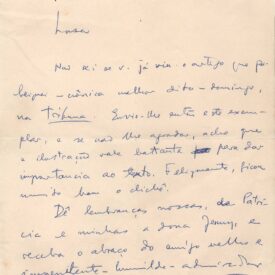 Não sei se v. já viu o artigo que pu
bliquei - crônica melhor dito - domingo,
na Tribuna. Envio-lhe entre este exem-
plar, e se não lhe agradar, acho que
a ilustração vale bastante para dar
importancia ao texto. Felizmente, ficou
muito bem o clichê.
Dê lembranças nossas, de Patrí-
cia e minhas a dona Jenny, e
receba o abraço do amigo velho e
impenitente - humilde - admirador